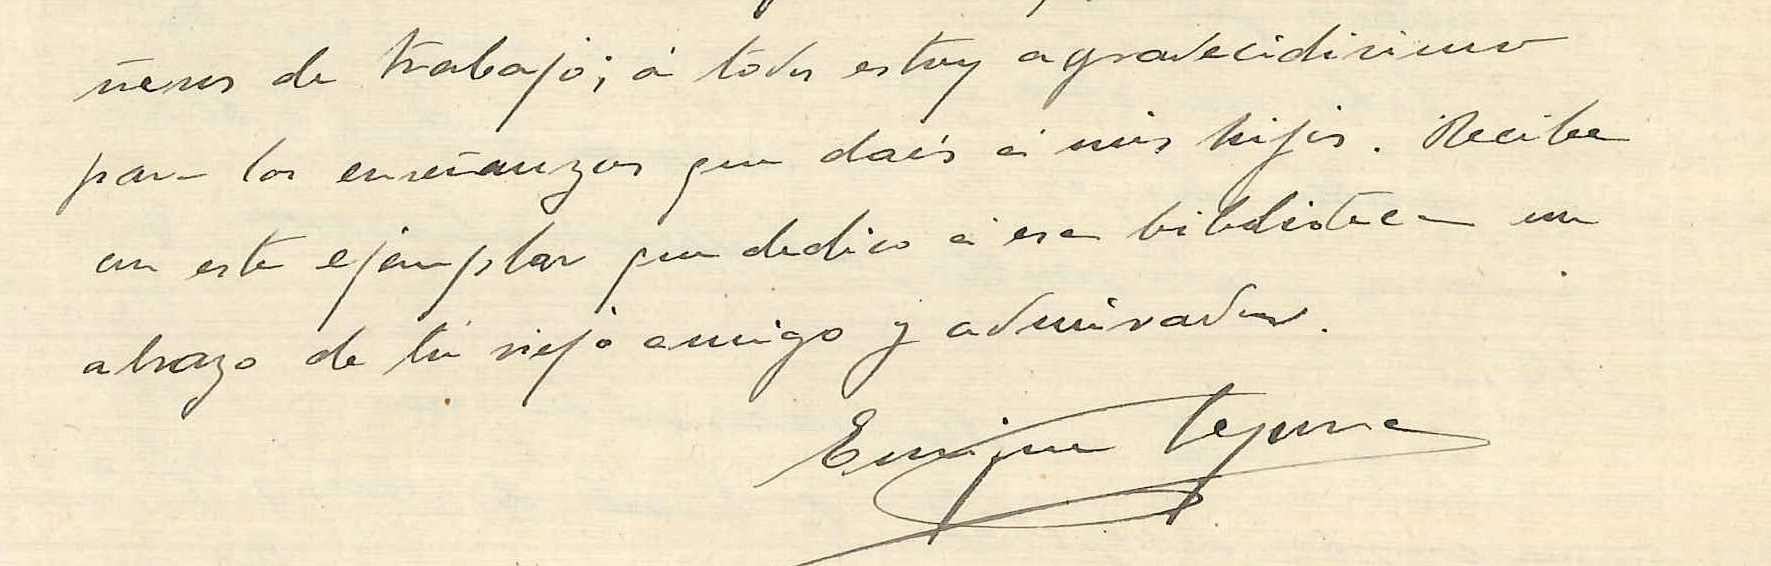 ñeros de trabajo; á todos estoy agradecidisimo
para las enseñanzas que dais á mis hijos. Recibe
en este ejemplar que dedico á esa biblioteca un
abrazo de tu viejo amigo y admirador.
Enrique